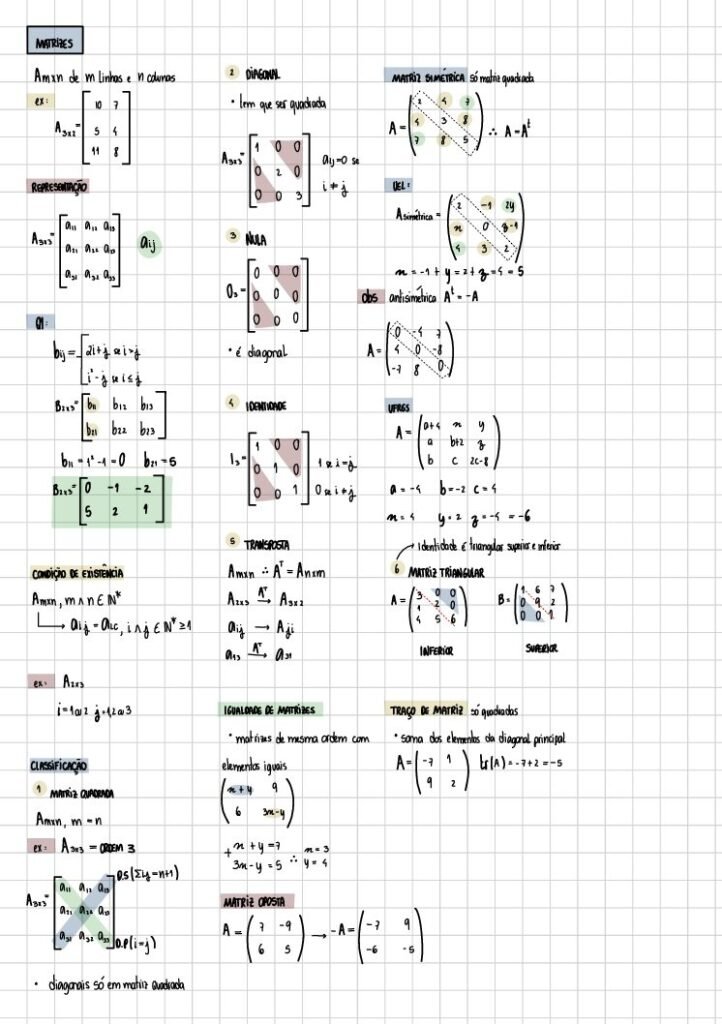 MATRIZES
Amxn de m linhas e n colunas
ex:
A3x2 = [10 7
5 4
11 8]
REPRESENTAÇÃO
A3x3 = [a11 a12 a13
a21 a22 a23
a31 a32 a33]
aij
Q1:
bij = [2i+j se i>j
i²-j se i≤j
B2x3 = [b11 b12 b13
b21 b22 b23]
b11 = 1²-1 = 0 b21 = 5
B2x3 = [0 -1 -2
5 2 1]
CONDIÇÃO DE EXISTÊNCIA
Amxn, m ∧ n ∈ ℕ*
aij = aLC, i ∧ j ∈ ℕ* ≥ 1
ex: A2x3
i = 1 ou 2 j = 1,2 ou 3
CLASSIFICAÇÃO
1 MATRIZ QUADRADA
Amxn, m = n
ex: A3x3 = ORDEM 3
A3x3 = [a11 a12 a13
a21 a22 a23
a31 a32 a33]
D.S (Σij = n+1)
D.P (i=j)
• diagonais só em matriz quadrada
2 DIAGONAL
• tem que ser quadrada
A3x3 = [1 0 0
0 2 0
0 0 3]
aij = 0 se
i ≠ j
3 NULA
O3 = [0 0 0
0 0 0
0 0 0]
• é diagonal
4 IDENTIDADE
I3 = [1 0 0
0 1 0
0 0 1]
1 se i=j
0 se i≠j
5 TRANSPOSTA
Amxn ∴ Aᵀ = Anxm
A2x3 →(Aᵀ) A3x2
aij → Aji
a13 →(Aᵀ) a31
IGUALDADE DE MATRIZES
• matrizes de mesma ordem com
elementos iguais
(x+y 9
6 3x-y)
+ x+y=7
3x-y=5 ∴ x=3
y=4
MATRIZ OPOSTA
A = (7 -9
6 5) → -A = (-7 9
-6 -5)
MATRIZ SIMÉTRICA só matriz quadrada
A = (2 4 7
4 3 8
7 8 5) ∴ A = Aᵗ
UEL:
Asimétrica = (2 -1 2y
x 0 z-1
4 3 2)
x = -1 + y = 2 + z = 4 = 5
obs antisimétrica Aᵗ = -A
A = (0 -4 7
4 0 -8
-7 8 0)
UFRGS
A = (a+4 x y
a b+2 z
b c 2c-8)
a = -4 b = -2 c = 4
x = 4 y = 2 z = -4 = -6
Identidade é triangular superior e inferior
6 MATRIZ TRIANGULAR
A = (3 0 0
1 2 0
4 5 6)
B = (1 6 7
0 9 2
0 0 1)
INFERIOR SUPERIOR
TRAÇO DE MATRIZ só quadradas
• soma dos elementos da diagonal principal
A = (-7 1
9 2) tr(A) = -7+2 = -5